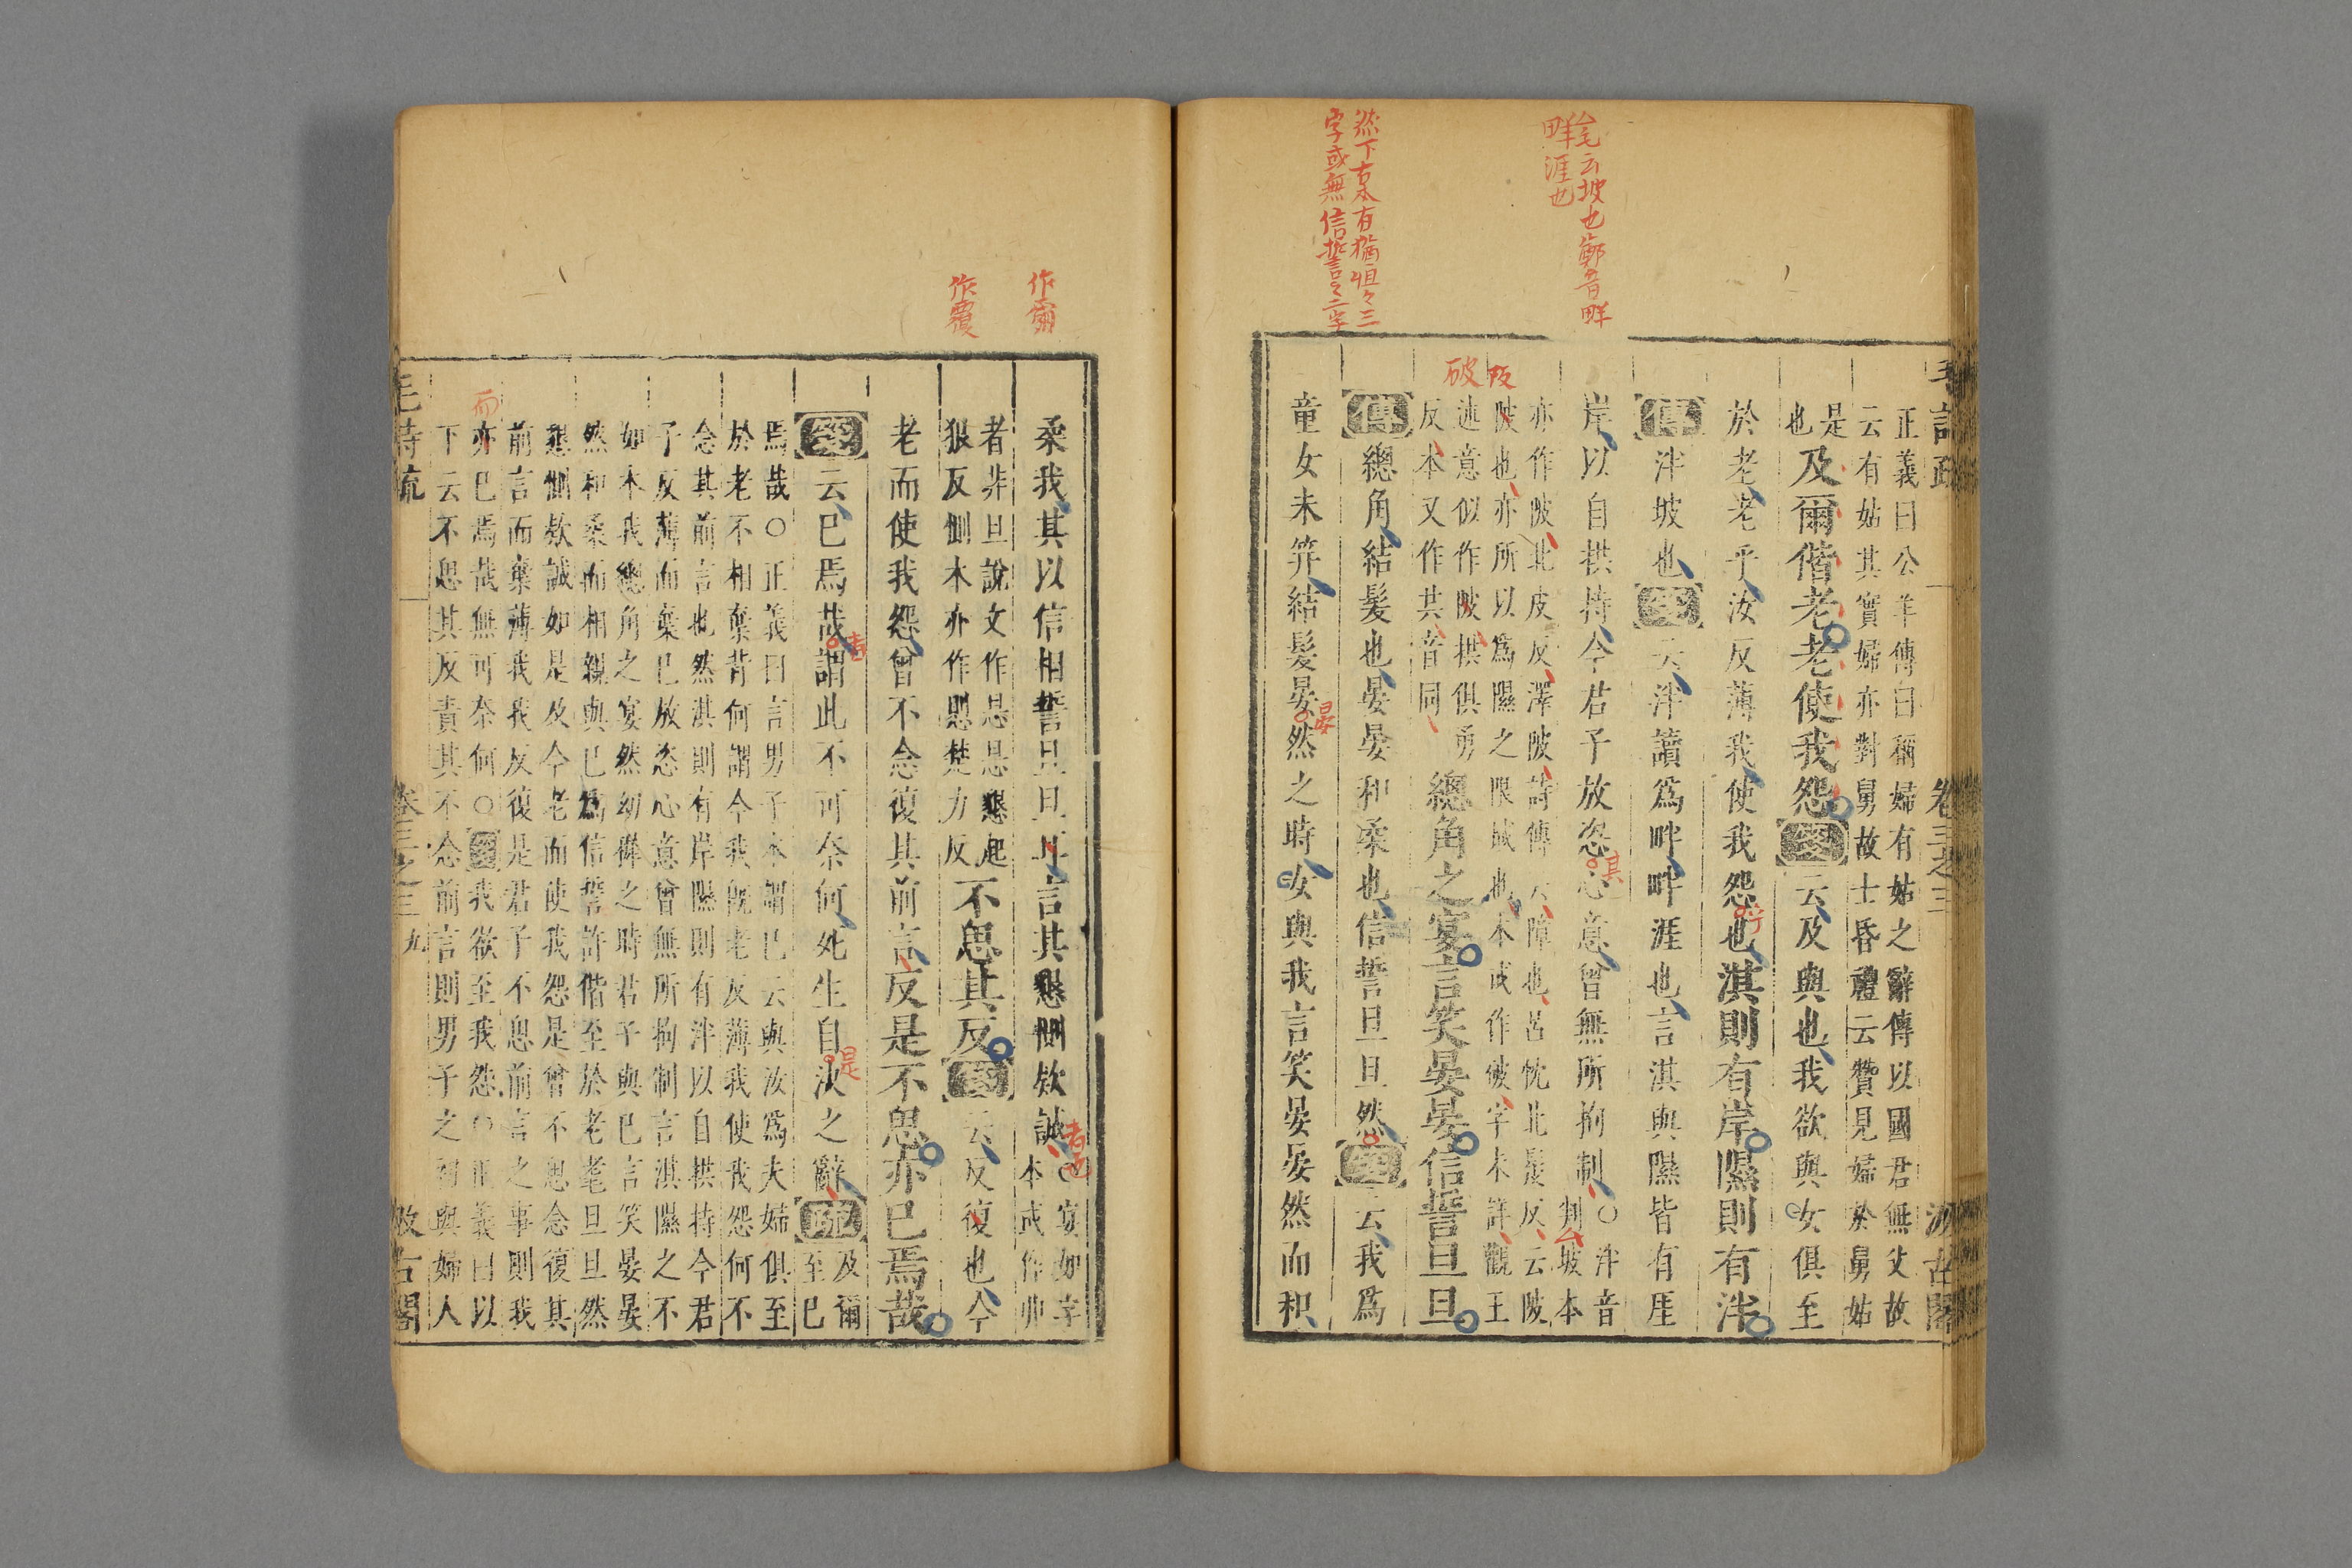 毛云坡也鄭音畔
畔涯也
然下古本有猶怛々三
字或無信誓々二字
毛詩疏 卷三之三 汲古閣
正義曰公羊傳曰稱婦有姑之辭傳以國君無父故
云有姑其實婦亦對舅故士昏禮云贊見婦於舅姑
是
也
及爾偕老老使我怨箋云及與也我欲與女俱至
於老老乎汝反薄我使我怨也淇則有岸隰則有泮
傳泮坡也箋云泮讀為畔畔涯也言淇與隰皆有厓
岸以自拱持今君子放恣心意曾無所拘制
○泮音
判坡本
亦作陂北皮反澤陂詩傳云障也呂忱北髲反云陂
陂也亦所以為隰之限域也本或作破字未詳觀王
述意似作陂拱俱勇
反本又作共音同
總角之宴言笑晏晏信誓旦旦
傳總角結髮也晏晏和柔也信誓旦旦然箋云我為
童女未筓結髮晏然之時女與我言笑晏晏然而和
阪
破
呼
其
晏
作爾
作覆
柔我其以信相誓旦旦耳言其懇惻款誠
○宴如字
本或作丱
者非旦說文作悬悬懇起
狠反惻本亦作𢝔楚力反
不思其反箋云反復也今
老而使我怨曾不念復其前言反是不思亦已焉哉
箋云已焉哉謂此不可奈何死生自決之辭疏
及爾
至已
焉哉○正義曰言男子本謂已云與汝為夫婦俱至
於老不相棄背何謂今我既老反薄我使我怨何不
念其前言也然淇則有岸隰則有泮以自拱持今君
子反薄而棄已放恣心意曾無所拘制言淇隰之不
如本我總角之宴然幼稺之時君子與已言笑晏晏
然和柔而相親與已為信誓許偕至於老耄旦旦然
懇惻款誠如是及今老而使我怨是曾不思念復其
前言而棄薄我我反復是君子不思前言之事則我
亦已焉哉無可奈何○箋我欲至我怨○正義曰以
下云不思其反責其不念前言則男子之初與婦人
者也
者
是
而
毛詩疏 卷三之三 九 汲古閣